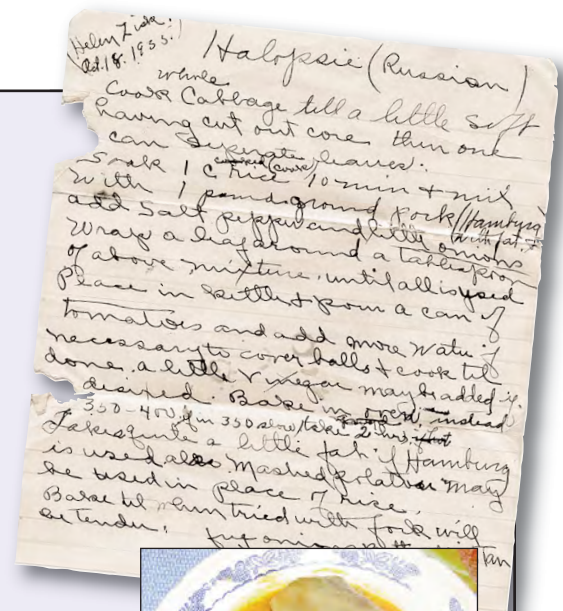 Helen Ziska.
Oct. 18. 1955.
Halopsie (Russian)
whole
Cook Cabbage till a little soft
having cut out core then one
can seperate leaves.
Soak 1 C Rice 10 min + mix
With 1 pound ground pork/Hamburg
add salt pepper and little onions
with fat
Wrap a leaf around a tablespoon
of above mixture, until all is used
Place in kettle & pour a can of
tomatoes and add more Water if
necessary to cover balls & cook til
done. a little Vinegar may be added if
desired. Bake in oven instead
350-400. if in 350 slow/take 2 hrs
Takes quite a little fat if Hamburg
is used also Mashed potatoes may
be used in place of rice.
Bake til when tried with fork will
be tender.
fry onions